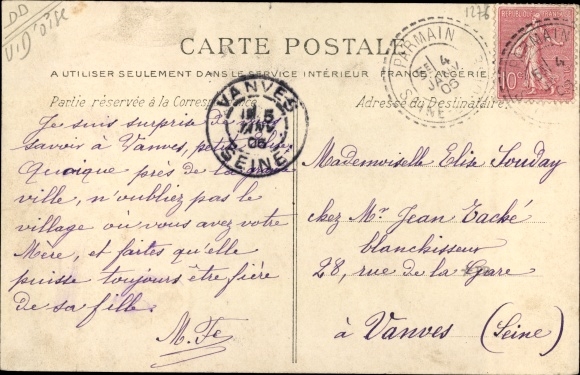 DD
V.D'Oise
1276
CARTE POSTALE
A UTILISER SEULEMENT DANS LE SERVICE INTÉRIEUR FRANCE, ALGÉRIE
Partie réservée à la Correspondance
Adresse du Destinataire
PARMAIN
4
JANV
06
SEINE
REPUBLIQUE FRANÇAISE
10c
VANVES
5
JANV
06
SEINE
Je suis surprise de
savoir à Vanves, petite
Quoique près de la
ville, n'oubliez pas le
village où vous avez votre
Mère, et faites qu'elle
puisse toujours être fière
de sa fille.
M. Fe
Mademoiselle Elise Souday
chez Mr Jean Taché
blanchisseur
28, rue de la Gare
à Vanves (Seine)